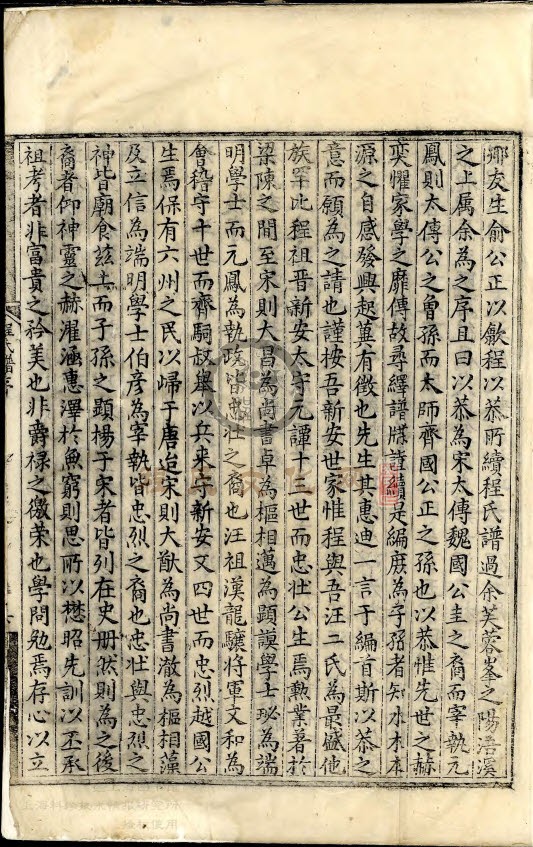 鄉友生俞公正以歙程以恭所續程氏譜過余芙蓉峯之陽浯溪
之上属余為之序且曰以恭為宋太傅魏國公圭之裔而宰執元
鳳則太傅公之曾孫而太師齊國公正之孫也以恭惟先世之赫
奕懼家學之靡傳故尋繹譜牒證續是編庶為子孫者知水木本
源之自感發興起冀有徵也先生其惠迪一言于編首斯以恭之
意而願為之請也謹按吾新安世家惟程與吾汪二氏為最盛他
族罕比程祖晋新安太守元譚十三世而忠壮公生焉勲業著於
梁陳之間至宋則大昌為尚書卓為樞相邁為顕謨學士珌為端
明學士而元鳳為執政皆忠壮之裔也汪祖漢龍驤將軍文和為
會稽守十世而齊駉叔舉以兵来守新安又四世而忠烈越國公
生焉保有六州之民以歸于唐迨宋則大猷為尚書澈為樞相藻
及立信為端明學士伯彦為宰執皆忠烈之裔也忠壮與忠烈之
神皆廟食兹土而子孫之顕揚于宋者皆列在史册然則為之後
裔者仰神靈之赫濯涵惠澤於無窮則思所以懋昭先訓以丕承
祖考者非富貴之矜美也非爵禄之徼荣也學問勉焉存心以立
程氏譜序